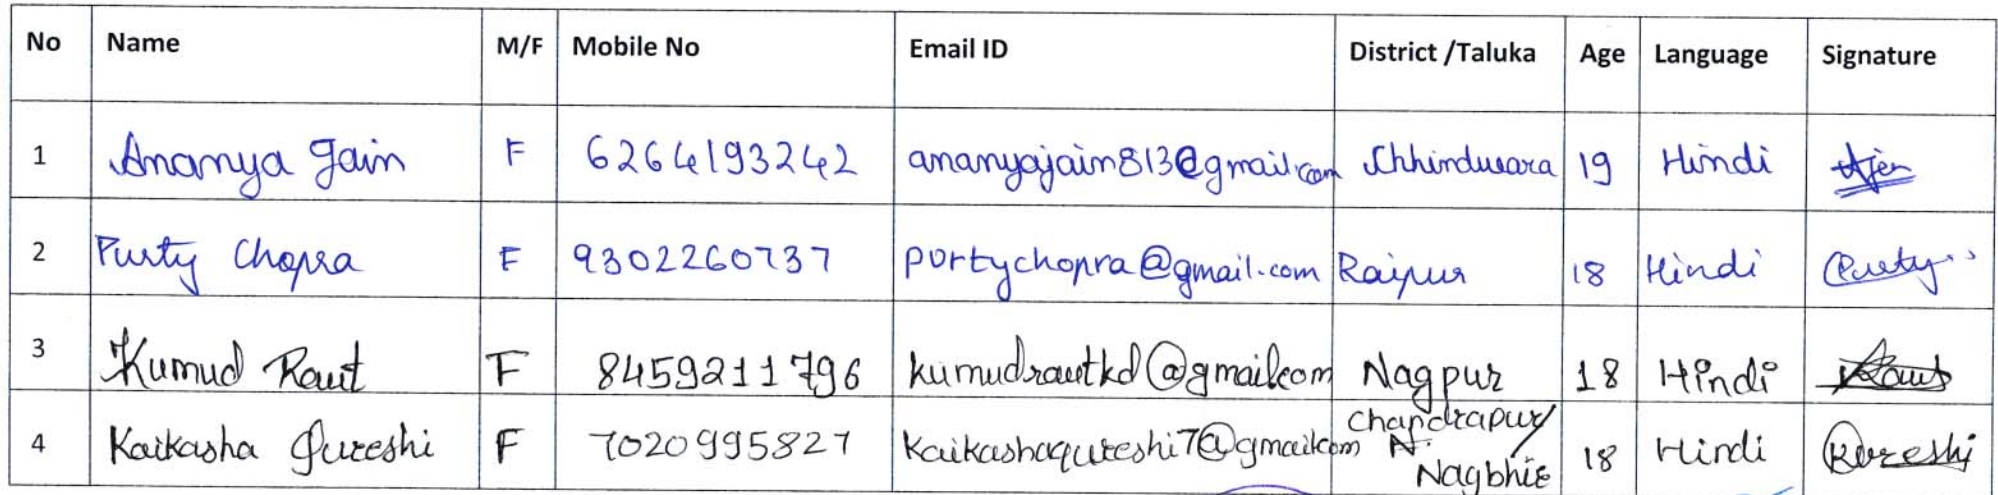 No Name M/F Mobile No Email ID District /Taluka Age Language Signature
1 Ananya Jain F 6264193242 ananyajain813@gmail.com Chhindwara 19 Hindi
2 Purty Chopra F 9302260737 purtychopra@gmail.com Raipur 18 Hindi Purty
3 Kumud Raut F 8459211796 kumudrautkd@gmail.com Nagpur 18 Hindi Raut
4 Kaikasha Qureshi F 7020995827 kaikashaqureshi7@gmail.com Chandrapur/ 18 Hindi Qureshi
N.
Nagbhid